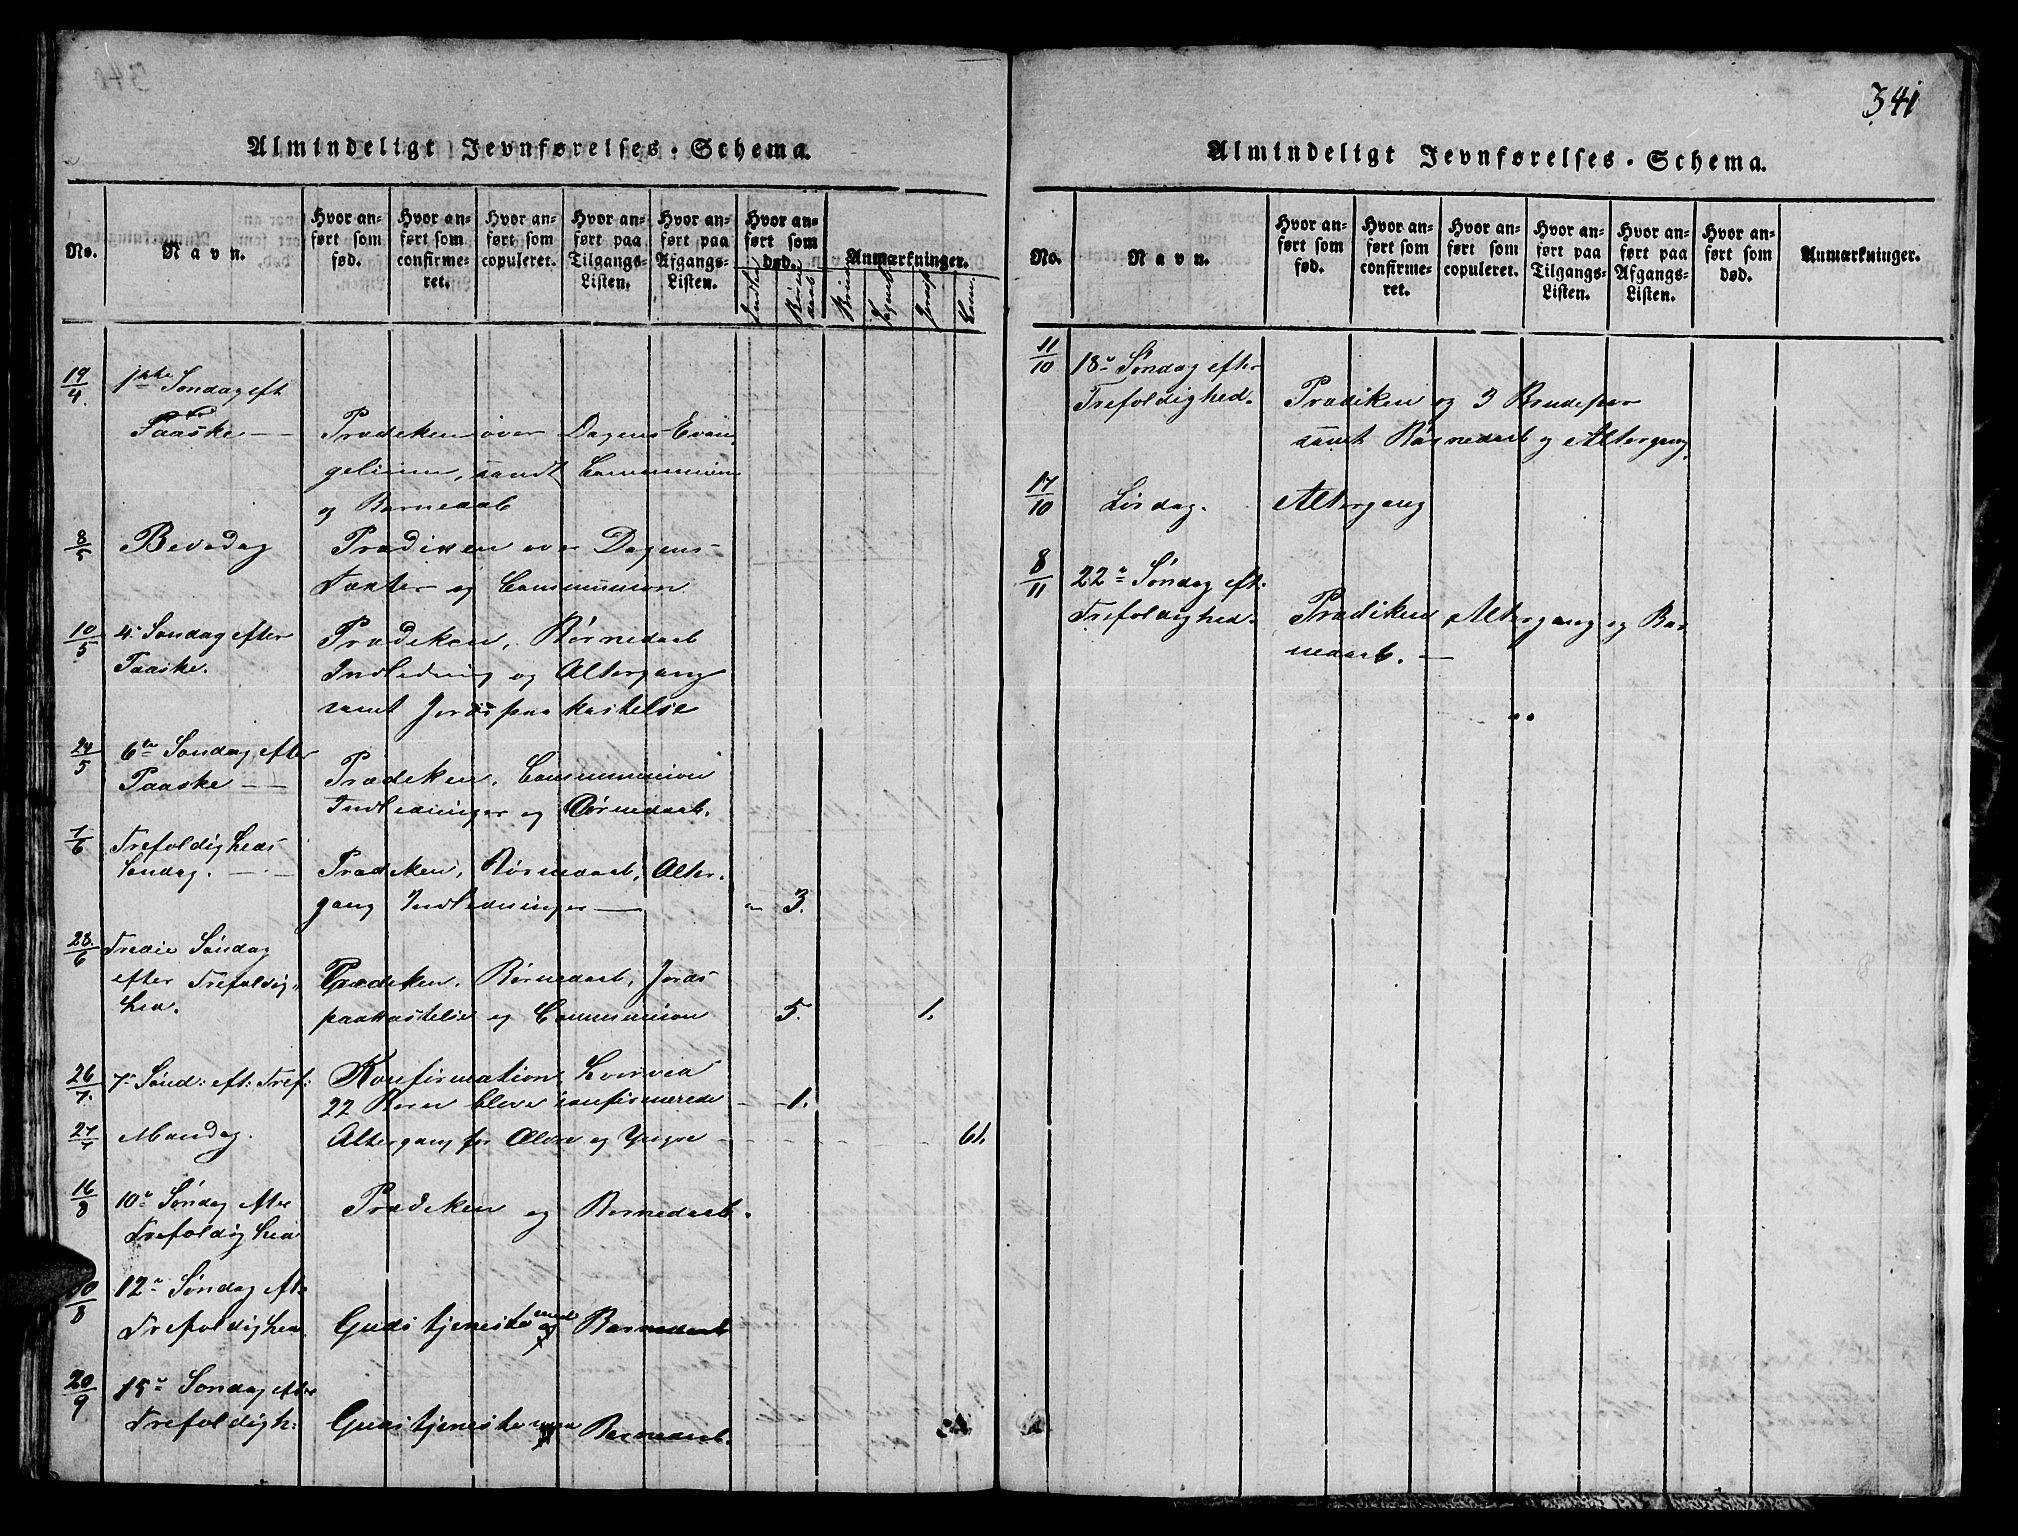 Almindeligt Jevnførelses-Schema.
No.
Navn.
Hvor anført som født.
Hvor anført som confirmeret.
Hvor anført som copuleret.
Hvor anført paa Tilgangs-Listen.
Hvor anført paa Afgangs-Listen.
Hvor anført som død.
Anmærkninger.
19/4. 1ste Søndag eft
Paaske — Prædeken over Dagens Evan,
gelium, samt Communion
og Barnedaab
8/5 Bededag Prædiken over Dagens
Texter og Communion
10/5 4. Søndag efter Prædeken, Børnedaab
Paaske. Indledning og Altergang
samt Jordspaakastelse
24/5 6te Søndag efter
Paaske — — Prædeken, Communion
Indledninger og Børnedaab.
7/6 Trefoldigheds
Søndag. — Prædeken, Børnedaab, Alter-
gang Indledninger — " 3.
28/6 Tredie Søndag
efter Trefoldig, Prædeken, Børnedaab, Jords
hed. paakastelse og Communion 5. 1.
26/7. 7. Sønd: eft: Tref: Konfirmation, hvorved
22 Børn bleve confirmerede — 1.
27/7 Mandag. Altergang for Ældre og Yngre — 61.
16/8 10de Søndag efter Prædeken og Barnedaab.
Trefoldighed
12de Søndag eft.
Trefoldighed Gudstjeneste med Barnedaab
20/9 15de Søndag efter
Trefoldigh: Gudstjeneste med Barnedaab.
341
Almindeligt Jevnførelses-Schema.
No.
Navn.
Hvor anført som fød.
Hvor anført som confirmeret.
Hvor anført som copuleret.
Hvor anført paa Tilgangs-Listen.
Hvor anført paa Afgangs-Listen.
Hvor anført som død.
Anmærkninger.
11/10 18de Søndag efter
Trefoldighed. Prædiken og 3 Brudepar
samt Børnedaab og Altergang.
17/10 Lørdag. Altergang
8/11 22de Søndag eft:
Trefoldighed. Prædiken, Altergang og Bar
nedaab. —